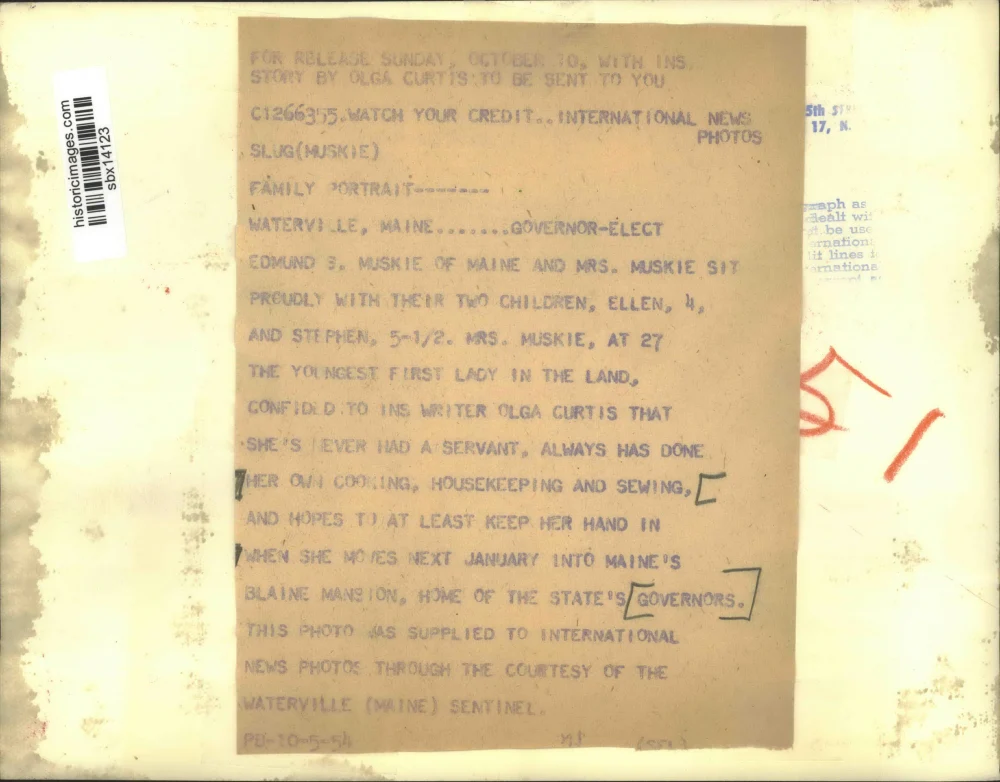 FOR RELEASE SUNDAY, OCTOBER 10, WITH INS
STORY BY OLGA CURTIS TO BE SENT TO YOU
C1266355.WATCH YOUR CREDIT..INTERNATIONAL NEWS
PHOTOS
SLUG(MUSKIE)
FAMILY PORTRAIT-------
WATERVILLE, MAINE.......GOVERNOR-ELECT
EDMUND S. MUSKIE OF MAINE AND MRS. MUSKIE SIT
PROUDLY WITH THEIR TWO CHILDREN, ELLEN, 4,
AND STEPHEN, 5-1/2. MRS. MUSKIE, AT 27
THE YOUNGEST FIRST LADY IN THE LAND,
CONFIDED TO INS WRITER OLGA CURTIS THAT
SHE'S NEVER HAD A SERVANT, ALWAYS HAS DONE
HER OWN COOKING, HOUSEKEEPING AND SEWING,
AND HOPES TO AT LEAST KEEP HER HAND IN
WHEN SHE MOVES NEXT JANUARY INTO MAINE'S
BLAINE MANSION, HOME OF THE STATE'S GOVERNORS.
THIS PHOTO WAS SUPPLIED TO INTERNATIONAL
NEWS PHOTOS THROUGH THE COURTESY OF THE
WATERVILLE (MAINE) SENTINEL.
10-5-54
historicimages.com
sbx14123
5th
17, N.
as
be
lit lines
5